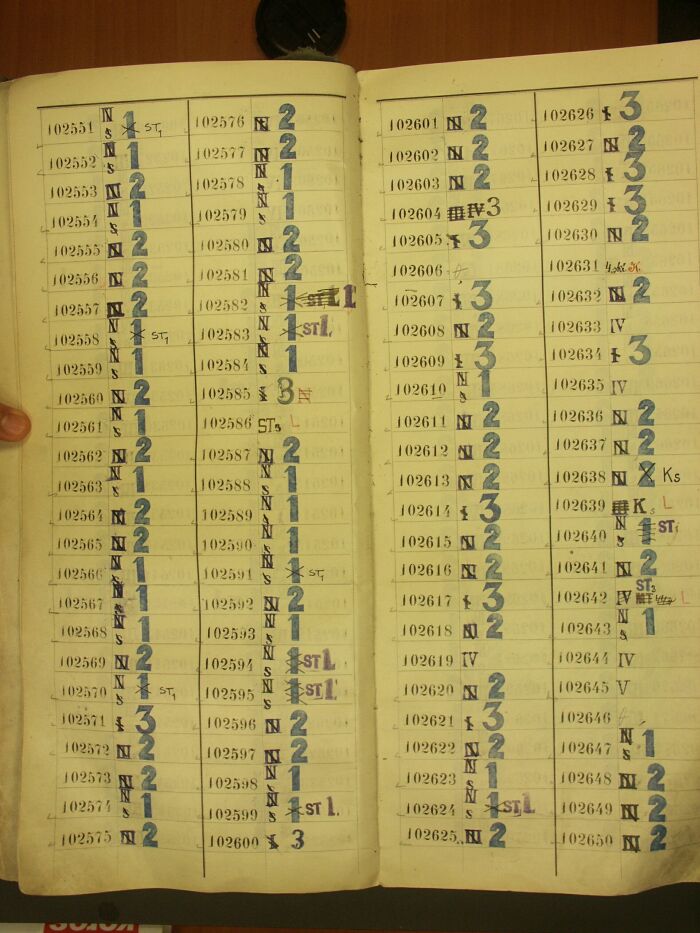 102551 N s 1 ST1
102552 N s 1
102553 N 2
102554 N s 1
102555 N 2
102556 N 2
102557 N 2
102558 N s 1 ST1
102559 N s 1
102560 N 2
102561 N s 1
102562 N 2
102563 N s 1
102564 N 2
102565 N 2
102566 N s 1
102567 N s 1
102568 N s 1
102569 N 2
102570 N s 1 ST1
102571 I 3
102572 N 2
102573 N 2
102574 N s 1
102575 N 2
102576 N 2
102577 N 2
102578 N s 1
102579 N s 1
102580 N 2
102581 N 2
102582 N s 1 ST 1
102583 N s 1 ST1
102584 N s 1
102585 I 3 N
102586 ST3 L
102587 N 2
102588 N s 1
102589 N s 1
102590 N s 1
102591 N s 1 ST1
102592 N 2
102593 N s 1
102594 N s 1 ST1
102595 N s 1 ST1
102596 N 2
102597 N 2
102598 N s 1
102599 N s 1 ST1
102600 I 3
102601 N 2
102602 N 2
102603 N 2
102604 III IV 3
102605 I 3
102606
102607 I 3
102608 N 2
102609 I 3
102610 N s 1
102611 N 2
102612 N 2
102613 N 2
102614 I 3
102615 N 2
102616 N 2
102617 I 3
102618 N 2
102619 IV
102620 N 2
102621 I 3
102622 N 2
102623 N s 1
102624 N s 1 ST1
102625 N 2
102626 I 3
102627 N 2
102628 I 3
102629 I 3
102630 N 2
102631
102632 N 2
102633 IV
102634 I 3
102635 IV
102636 N 2
102637 N 2
102638 N 2 Ks
102639 Ks L
102640 N s 1 ST1
102641 N 2
102642 IV ST3 L
102643 N s 1
102644 IV
102645 V
102646
102647 N s 1
102648 N 2
102649 N 2
102650 N 2